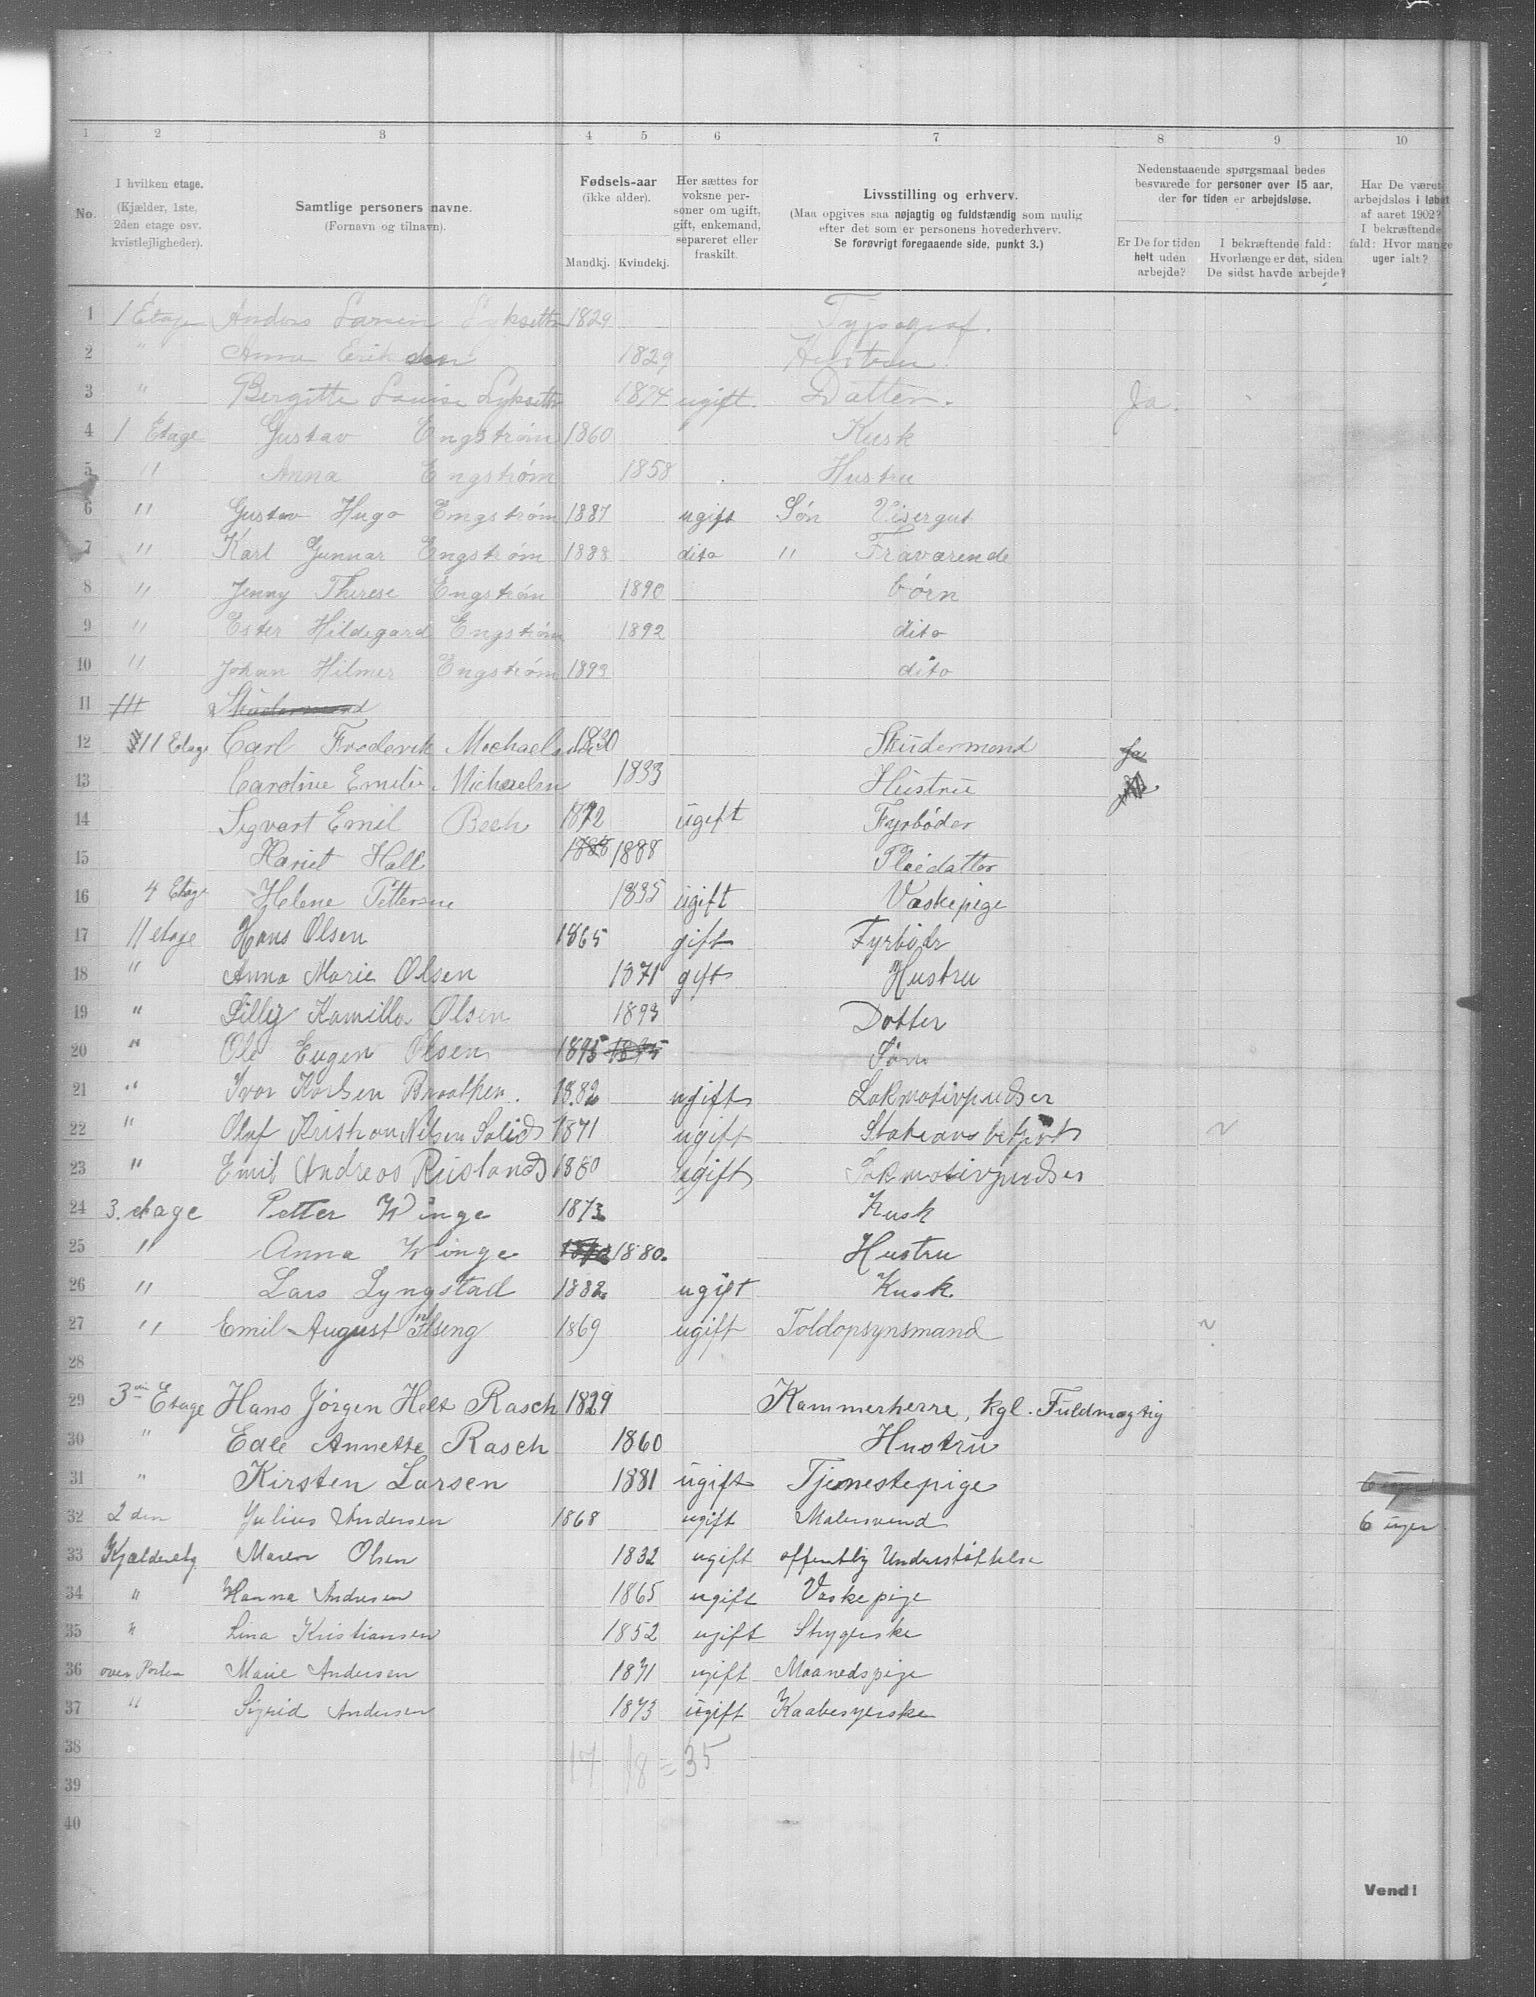 1 2 3 4 5 6 7 8 9 10
No.
I hvilken etage.
(Kjælder, 1ste, 2den etage osv. kvistlejligheder).
Samtlige personers navne.
(Fornavn og tilnavn).
Fødsels-aar
(ikke alder).
Mandkj. Kvindekj.
Her sættes for voksne personer om ugift, gift, enkemand, separeret eller fraskilt.
Livsstilling og erhverv.
(Maa opgives saa nøjagtig og fuldstændig som mulig efter det som er personens hovederhverv.
Se forøvrigt foregaaende side, punkt 3.)
Nedenstaaende spørgsmaal bedes besvarede for personer over 15 aar, der for tiden er arbejdsløse.
Er De for tiden helt uden arbejde?
I bekræftende fald: Hvorlænge er det, siden De sidst havde arbejde?
Har De været arbejdsløs i løbet af aaret 1902? I bekræftende fald: Hvor mange uger ialt?
1 1 Etage Anders Larsen Lyksette 1829 Typograf.
2 " Anna Eriksden 1829 Hustru
3 " Bergitte Lovise Lyksette 1874 ugift Datter. Ja.
4 1 Etage Gustav Engstrøm 1860 Kusk
5 " Anna Engstrøm 1858 Hustru
6 " Gustav Hugo Engstrøm 1887 ugift Søn Visergut
7 " Karl Gunnar Engstrøm 1888 dito " Fraværende
8 " Jenny Therese Engstrøm 1890 børn
9 " Ester Hildegard Engstrøm 1892 dito
10 " Johan Hilmer Engstrøm 1893 dito
11 III Skudermand
12 II Etage Carl Frederik Michaelsen 1830 Skudermand Ja
13 Caroline Emilie Michaelsen 1833 Hustru
14 Sigvart Emil Bech 1872 ugift Fyrbøder
15 Hariet Hall 1888 1888 Pleiedatter
16 4 Etage Helene Pettersne 1835 ugift Vaskepige
17 II etage Hans Olsen 1865 gift Fyrbødr
18 " Anna Marie Olsen 1871 gift Hustru
19 " Lilly Kamilla Olsen 1893 Datter
20 " Ole Eugen Olsen 1895 1895 Søn
21 " Ivar Karlsen Braathen. 1882 ugift Lokmotivpudser
22 " Olaf Kristian Nilsen Solid 1871 ugift Stationsbetjent
23 " Emil Andreas Rusland 1880 ugift Lokmotivpudser
24 3. etage Petter Winge 1873 Kusk
25 " Anna Winge 1880. Hustru
26 " Lars Lyngstad 1882 ugift Kusk
27 " Emil August Ilseng 1869 ugift Toldopsynsmand
28
29 3die Etage Hans Jørgen Holt Rasch 1829 Kammerherre, kgl. Fuldmægtig
30 " Edle Annette Rasch 1860 Hustru
31 " Kirsten Larsen 1881 ugift Tjenestepige 6 uger
32 2 den Julius Andersen 1868 ugift Malersvend 6 uger
33 Kjælderetg Maren Olsen 1832 ugift offentlig Understøttelse
34 " Hanna Andersen 1865 ugift Vaskepige
35 " Lina Kristiansen 1852 ugift Strygerske
36 over Porten Marie Andersen 1871 ugift Maanedspige
37 " Sigrid Andersen 1873 ugift Kaabesyerske
38 17 18 = 35
39
40
Vend!